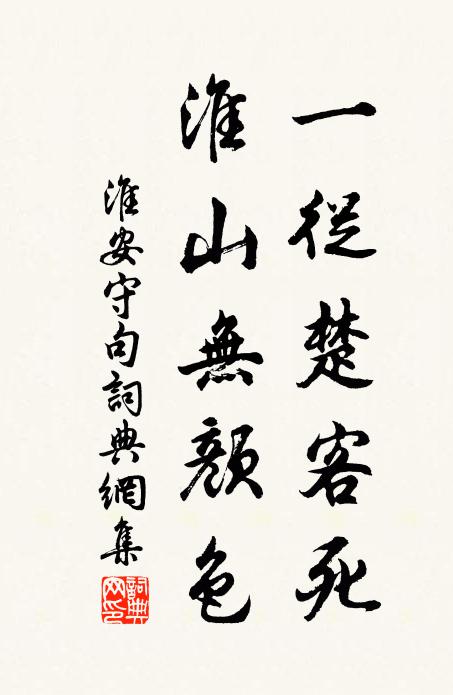 一從楚客死
淮山無顏色
淮安守句詞典網集
詞典网印